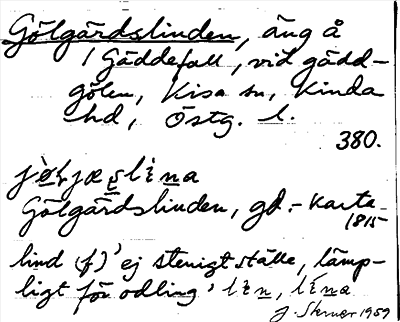 Gölgärdslinden, äng å
/ Gäddefall, vid gädd-
gölen, Kisa sn, Kinda
hd, Östg. l.
380.
jö̀ljæṣlìna
Gölgärdslinden, gd.- karta
1815
lind (f) 'ej stenigt ställe, lämp-
ligt för odling', lìn, lìna
J. Skerner 1959